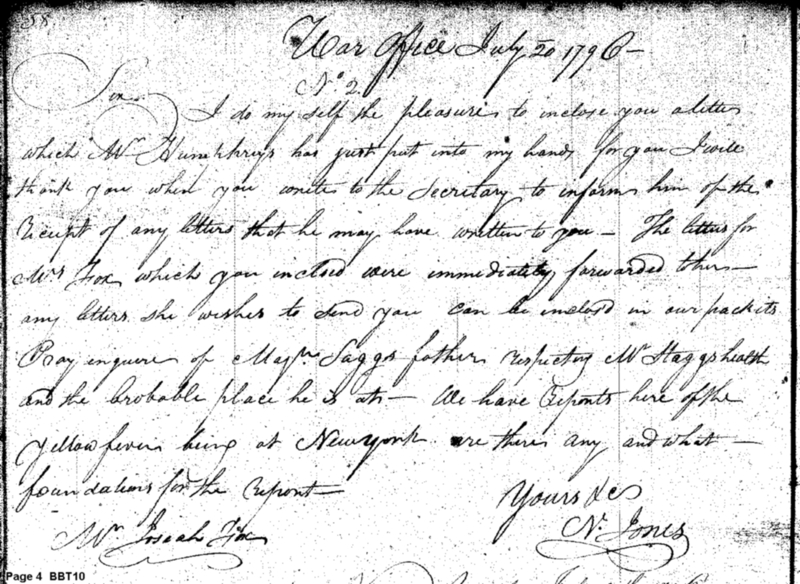 38
War Office July 20 1796 —
No. 2
Sir
I do my self the pleasure to inclose you a letter
which Mr Humphreys has just put into my hands for you I will
thank you when you write to the Secretary to inform him of the
Receipt of any letters that he may have written to you — The letters for
Mrs Fox which you inclosd were immediately forwarded to her —
any letters she wishes to send you can be inclosd in our packets
Pray enquire of Majr Saggs father respecting Mr Staggs health
and the probable place he is at — We have Reports here of the
Yellow fever being at Newyork are there any and what —
foundations for the Report —
Yours &c
Mr Josiah Fox
N. Jones
Page 4 BBT10